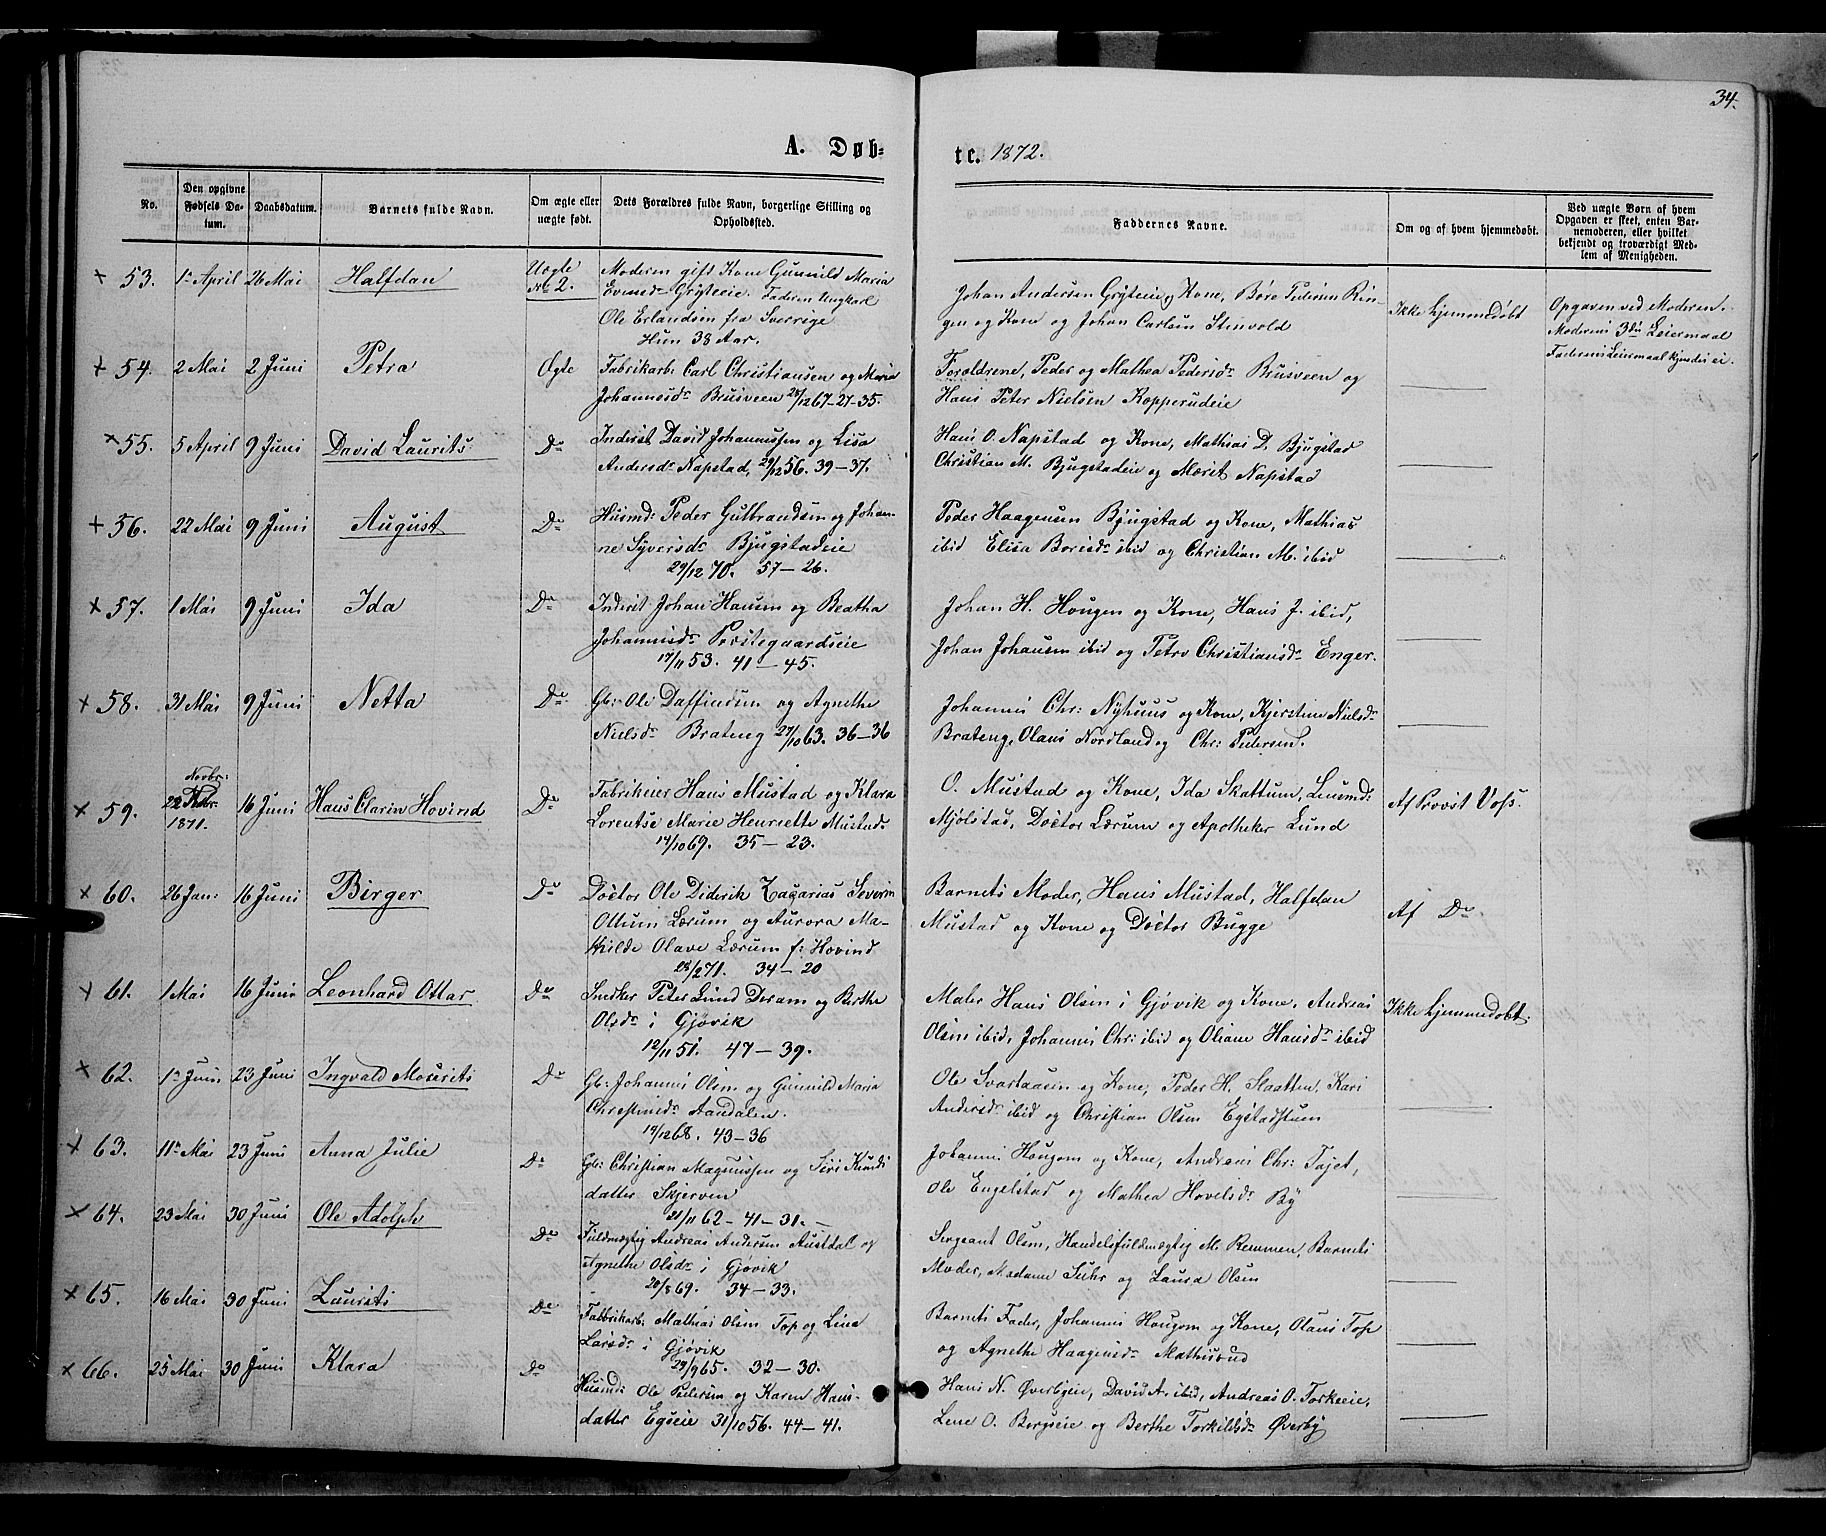 34.
A. Døb-
te. 1872.
No.
Den opgivne Fødsels Da-tum.
Daabsdatum.
Barnets fulde Navn.
Om ægte eller uægte født.
Dets Forældres fulde Navn, borgerlige Stilling og Opholdssted.
Faddernes Navne.
Om og af hvem hjemmedøbt.
Ved uægte Børn af hvem Opgaven er skeet, enten Bar-nemoderen, eller hvilket bekjendt og troværdigt Med-lem af Menigheden.
+ 53. 1ste April 26 Mai Halfdan Uægte No 2. Moderen gift Kone Gunnild Maria
Evensdr Grýteeie. Faderen Ungkarl
Ole Erlandsen fra Sverrige
Hun 38 Aar.
Johan Andersen Grýteeie og Kone, Børe Pedersen Rin-
gen og Kone og Johan Carlsen Stenvold
Ikke hjemmedøbt
Opgaven ved Moderen.
Moderens 3die Leiermaal
Faderens Leiermaal kjendes ei
+ 54. 2 Mai 2 Juni Petra Ægte Fabrikarb: Carl Christiansen og Maria
Johannesdr Brusveen 28/12 67-27-35.
Forældrene, Peder og Mathea Pedersdr Brusveen og
Hans Peter Nielsen Kopperudeie
x 55. 5 April 9 Juni David Laurits Do Inderst David Johannessen og Lisa
Andersdr Napstad, 29/12 56. 39-37.
Hans O. Napstad og Kone, Mathias D. Bjugstad
Christian M. Bjugstadeie og Mærit Napstad
+ 56. 22 Mai 9 Juni August Do Husmd: Peder Gulbrandsen og Johan-
ne Syversdr Bjugstadeie
29/12 70. 57-26.
Peder Haagensen Bjugstad og Kone, Mathias
ibid Elisa Borisdr ibid og Christian M. ibid
x 57. 1 Mai 9 Juni Ida Do Inderst Johan Hansen og Beatha
Johannesdr Præstegaardseie
17/11 53. 41-45.
Johan H. Hougen og Kone, Hans J. ibid,
Johan Johansen ibid og Petro Christiansdr Enger.
x 58. 31 Mai 9 Juni Netta Do Gb: Ole Daffindsen og Agnethe
Nielsdr Brateng 27/10 63. 36-36
Johannes Chr: Nyhuus og Kone, Kjerstine Nielsdr
Brateng, Olaus Nordland og Chr: Pedersen.
x 59. Novbr: 22 1871. 16 Juni Hans Clarin Hovind Do Fabrikeier Hans Mustad og Klara
Lorentse Marie Henriette Mustad
14/10 69. 35-23.
O. Mustad og Kone, Ida Skattum, Lensmd:
Mjølstad, Doctor Lærum og Apotheker Lund
Af Provst Voss.
x 60. 26 Jan: 16 Juni Birger Do Doctor Ole Diderik Zacarias Severin
Ottum Lærum og Aurora Ma-
thilde Olave Lærum f: Hovind
28/2 71. 34-20
Barnets Moder, Hans Mustad, Halfdan
Mustad og Kone og Doctor Bugge
Af Do
+ 61. 1 Mai 16 Juni Leonhard Ottar Do Snedker Peter Lund Deram og Berthe
Olsdr i Gjøvik
12/11 51. 47-39.
Maler Hans Olsen i Gjøvik og Kone, Andreas
Olsen ibid, Johannes Chr: ibid og Oliane Hansdr ibid
Ikke hjemmedøbt
x 62. 1ste Juni 23 Juni Ingvald Mourits Do Gb: Johannes Olsen og Gunnild Maria
Christensdr Aandalen.
14/12 68. 43-36
Ole Svartaasen og Kone, Peder H. Slaatten, Kari
Andersdr ibid og Christian Olsen Egstadstuen
x 63. 11te Mai 23 Juni Anna Julie Do Gb: Christian Magnussen og Siri Knuds
datter Skjerven
21/11 62-41-31.
Johannes Hougom og Kone, Andreas Chr: Fajet,
Ole Engelstad og Mathea Hovelsdr By
x 64. 23 Mai 30 Juni Ole Adolph Do Fuldmægtig Andreas Andersen Austdal og
Agnethe Olsdr i Gjøvik
20/8 69. 34-33.
Sergeant Olsen, Handelsfuldmægtig M. Remmen, Barnets
Moder, Madame Suhr og Laura Olsen
x 65. 16 Mai 30 Juni Laurits Do Fabrikarb: Mathias Olsen Top og Lina
Larsdr i Gjøvik
29/9 65. 32-30.
Barnets Fader, Johannes Hougom og Kone, Olaus Top
og Agnethe Haagensdr Mathusrud
x 66. 25 Mai 30 Juni Klara Do Husmd: Ole Pedersen og Karen Hans-
datter Egseie 31/10 56. 44-41.
Hans N. Øverbyeie, David A. ibid, Andreas O. Torkeeie,
Lene O. Bergseie og Berthe Torkildsdr Øverby